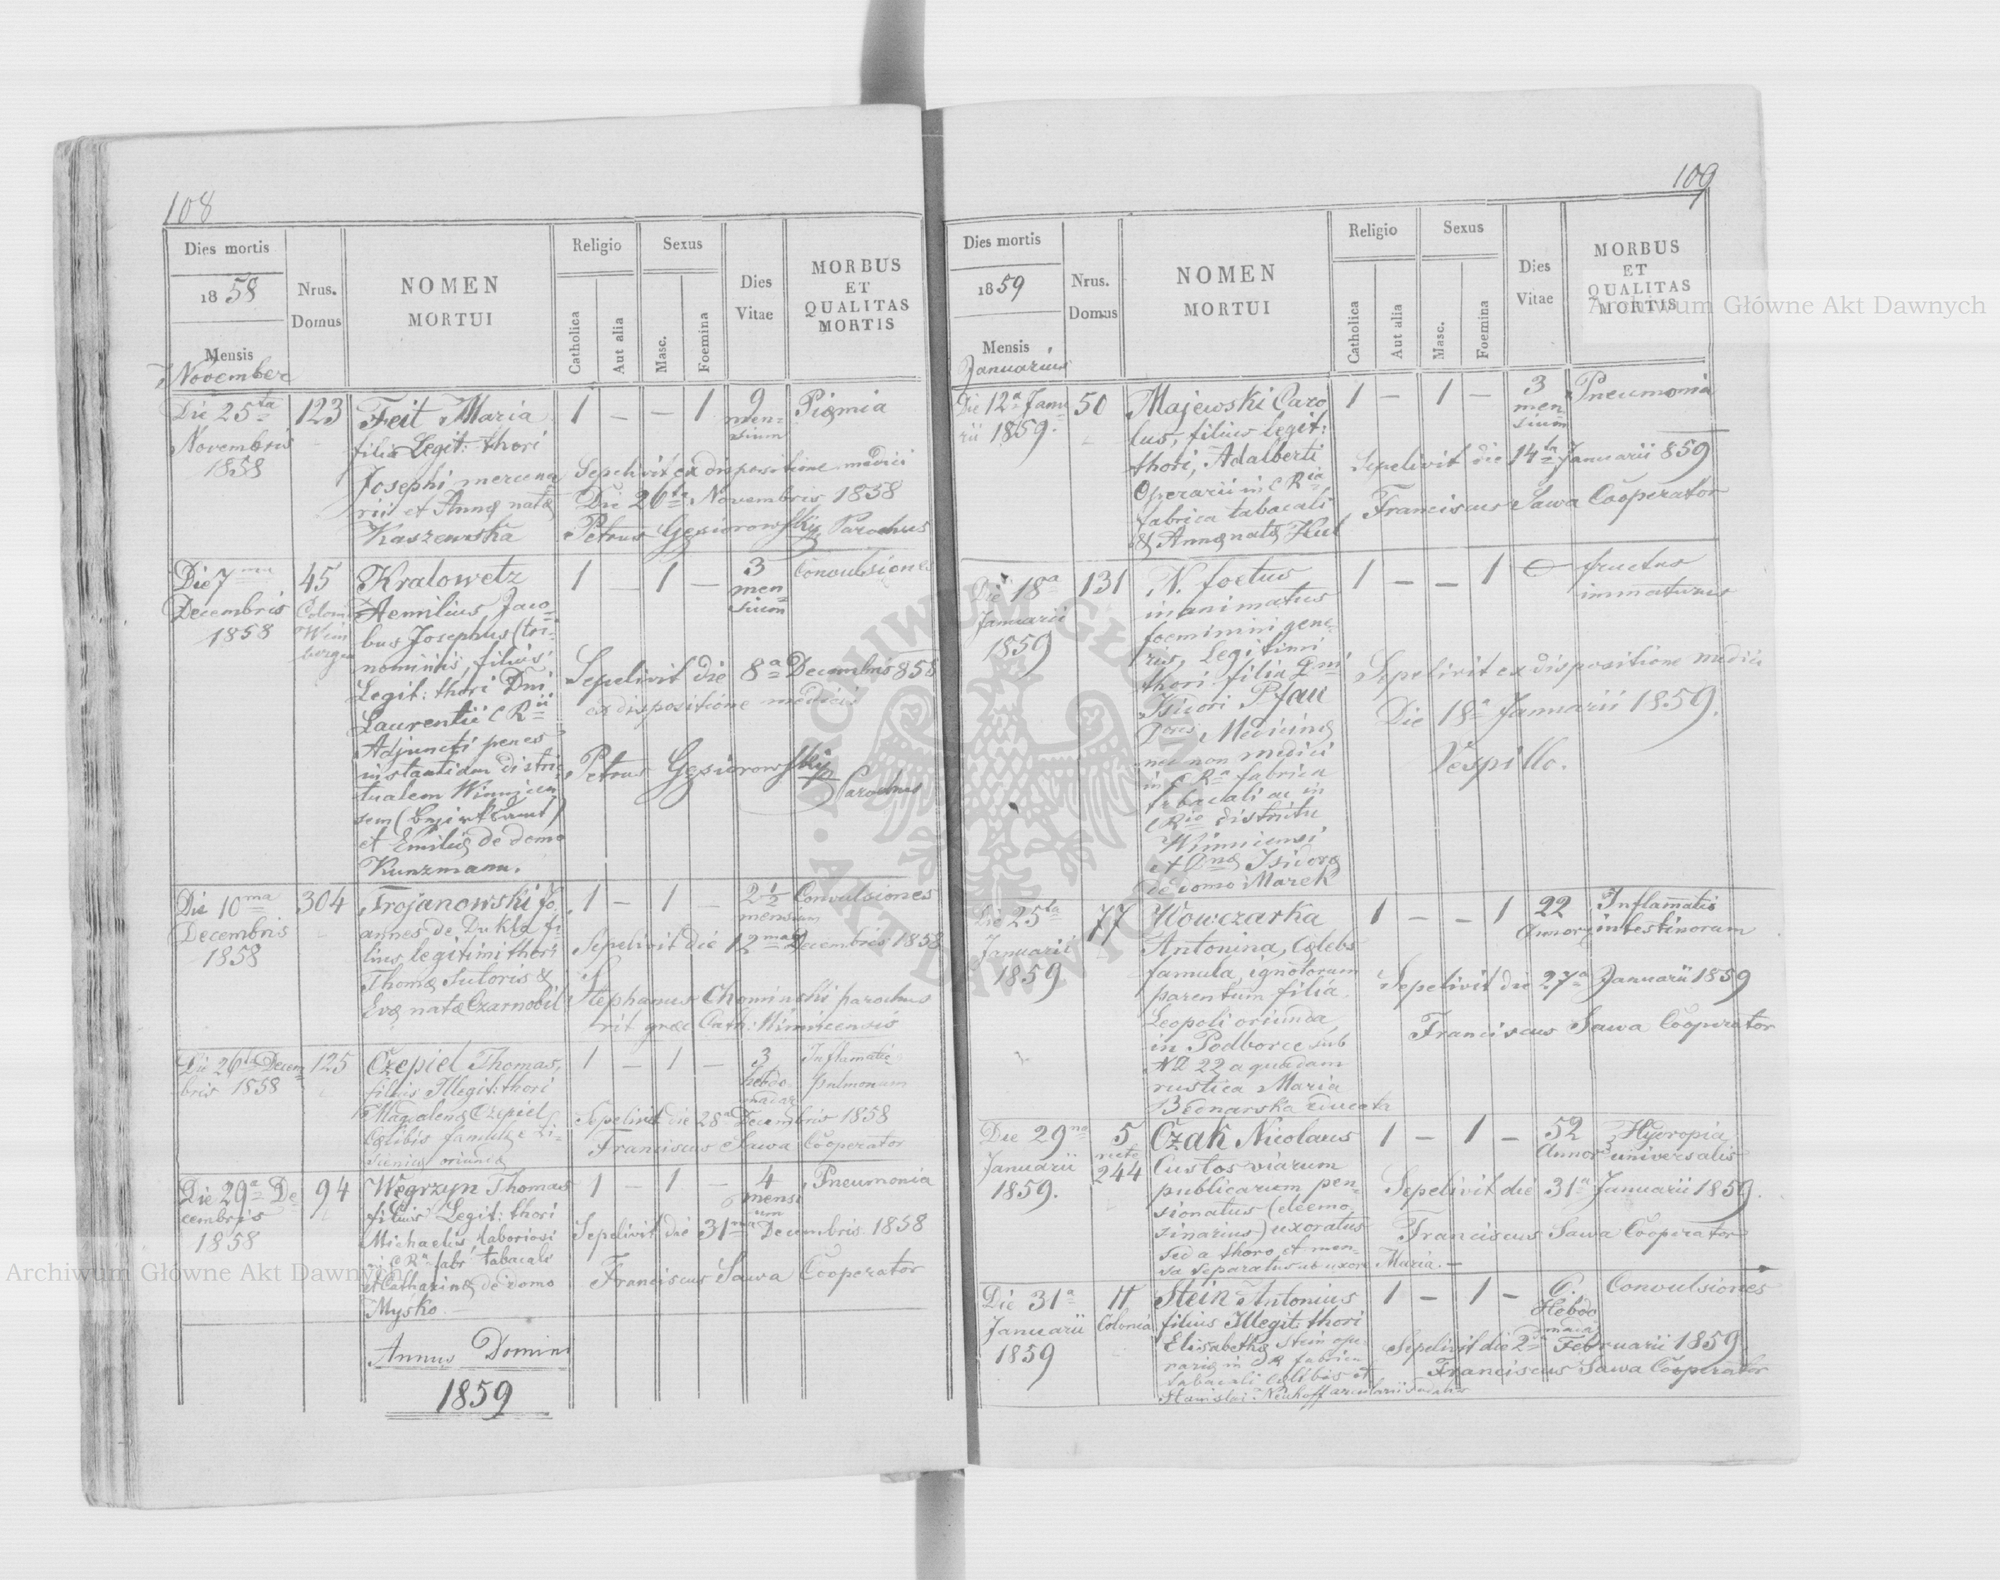 108
Dies mortis
1858
Mensis
November
Nrus.
Domus
NOMEN
MORTUI
Religio
Catholica
Aut alia
Sexus
Masc.
Foemina
Dies
Vitae
MORBUS
ET
QUALITAS
MORTIS
Die 25ta
Novembris
1858
123
Feit Maria
filia Legit: thori
Josephi mercena
rii et Annę natę
Kaszewska
1 — — 1
9
men-
sium
Sepelivit ex dispositione medici
Die 26ta Novembris 1858
Petrus Gęsiorowski Parochus
Die 7ma
Decembris
1858
45
Kralowetz
Aemilius Jaco-
bus Josephus (tri-
nominis, filius
Legit: thori Dni
Laurentii CRii
Adjuncti penes
instantiam distric
tualem Winnicen
sem
et Emilię de domo
Kunzmann.
1 — 1 —
3
men
sium
Convulsiones
Sepelivit die 8a Decembris 858
ex dispositione medici.
Petrus Gęsiorowski
Parochus
Die 10ma
Decembris
1858
304
Trojanowski Jo,
annes de Dukla fi
lius legitimi thori
Thomę Sutoris &
Evę natę Czarnobil
1 — 1 —
2½
mensium
Convulsiones
Sepelivit die 12ma Decembris 1858
Stephanus Chominski parochus
rit græc Cath: Winnicensis
Die 26ta Decem
bris 1858
125
Czepiel Thomas,
filius Illegit: thori
Magdalenę Czepiel
Cęlibis famulę
1 — 1 —
3
hebdo
madar
Inflamatio
pulmonum
Sepelivit die 28a Decembris 1858
Franciscus Sawa Cooperator
Die 29a De
cembris
1858
94
Węgrzyn Thomas
filius Legit: thori
Michaelis laboriosi
in CRa fabr tabacali
et Catharinę de domo
Mysko
1 — 1 —
4
mensi
um
Pneumonia
Sepelivit die 31ma Decembris 1858
Franciscus Sawa Cooperator
Annus Domini
1859
109
Dies mortis
1859
Mensis
Januarius
Nrus.
Domus
NOMEN
MORTUI
Religio
Catholica
Aut alia
Sexus
Masc.
Foemina
Dies
Vitae
MORBUS
ET
QUALITAS
MORTIS
Die 12a Janu
rii 1859.
50
Majewski Caro
lus, filius Legit:
thori, Adalberti
Operarii in CRia
fabrica tabacali
& Annę natę Hut
1 — 1 —
3
men
sium
Pneumonia
Sepelivit die 14ta Januarii 859
Franciscus Sawa Cooperator
Die 18a
Januarii
1859
131
N. foetus
inanimatus
foeminini gene,
ris, Legitimi
thori filia Dni
Isidori Pfau
Medicinę
nec non medici
in CRa fabrica
tabacali ac in
CRio districtu
Winnicensi
et Dnę Isidorę
de domo Marek
1 — — 1
fructus
immaturus
Sepelivit ex dispositione medici
Die 18a Januarii 1859.
Vespillo.
Die 25ta
Januarii
1859
77
Wowczarka
Antonina, Cęlebs
famula, ignotorum
parentum filia,
Leopoli oriunda,
in Podborce sub
N 22 a quadam
rustica Maria
Bednarska educata
1 — — 1
22
Annor
Inflamatis
intestinorum
Sepelivit die 27a Januarii 1859
Franciscus Sawa Cooperator
Die 29na
Januarii
1859.
5
recte
244
Czak Nicolaus
Custos viarum
publicarum pen-
sionatus (eleemo,
sinarius) uxoratus
sed a thoro et men-
sa separatus ab uxore Maria. —
1 — 1 —
52
Annor
Hydropia
universalis
Sepelivit die 31a Januarii 1859.
Franciscus Sawa Cooperator
Die 31a
Januarii
1859
11
Colonia
Stein Antonius
filius Illegit: thori
Elisabethę Stein ope-
rarię in CR fabrica
tabacali Cęlibis et
Stanislai Neuhoff
1 — 1 —
6.
Hebdo
madar
Convulsiones
Sepelivit die 2da Februarii 1859
Franciscus Sawa Cooperator
Archiwum Główne Akt Dawnych
Archiwum Główne Akt Dawnych
ARCHIWUM GŁÓWNE AKT DAWNYCH